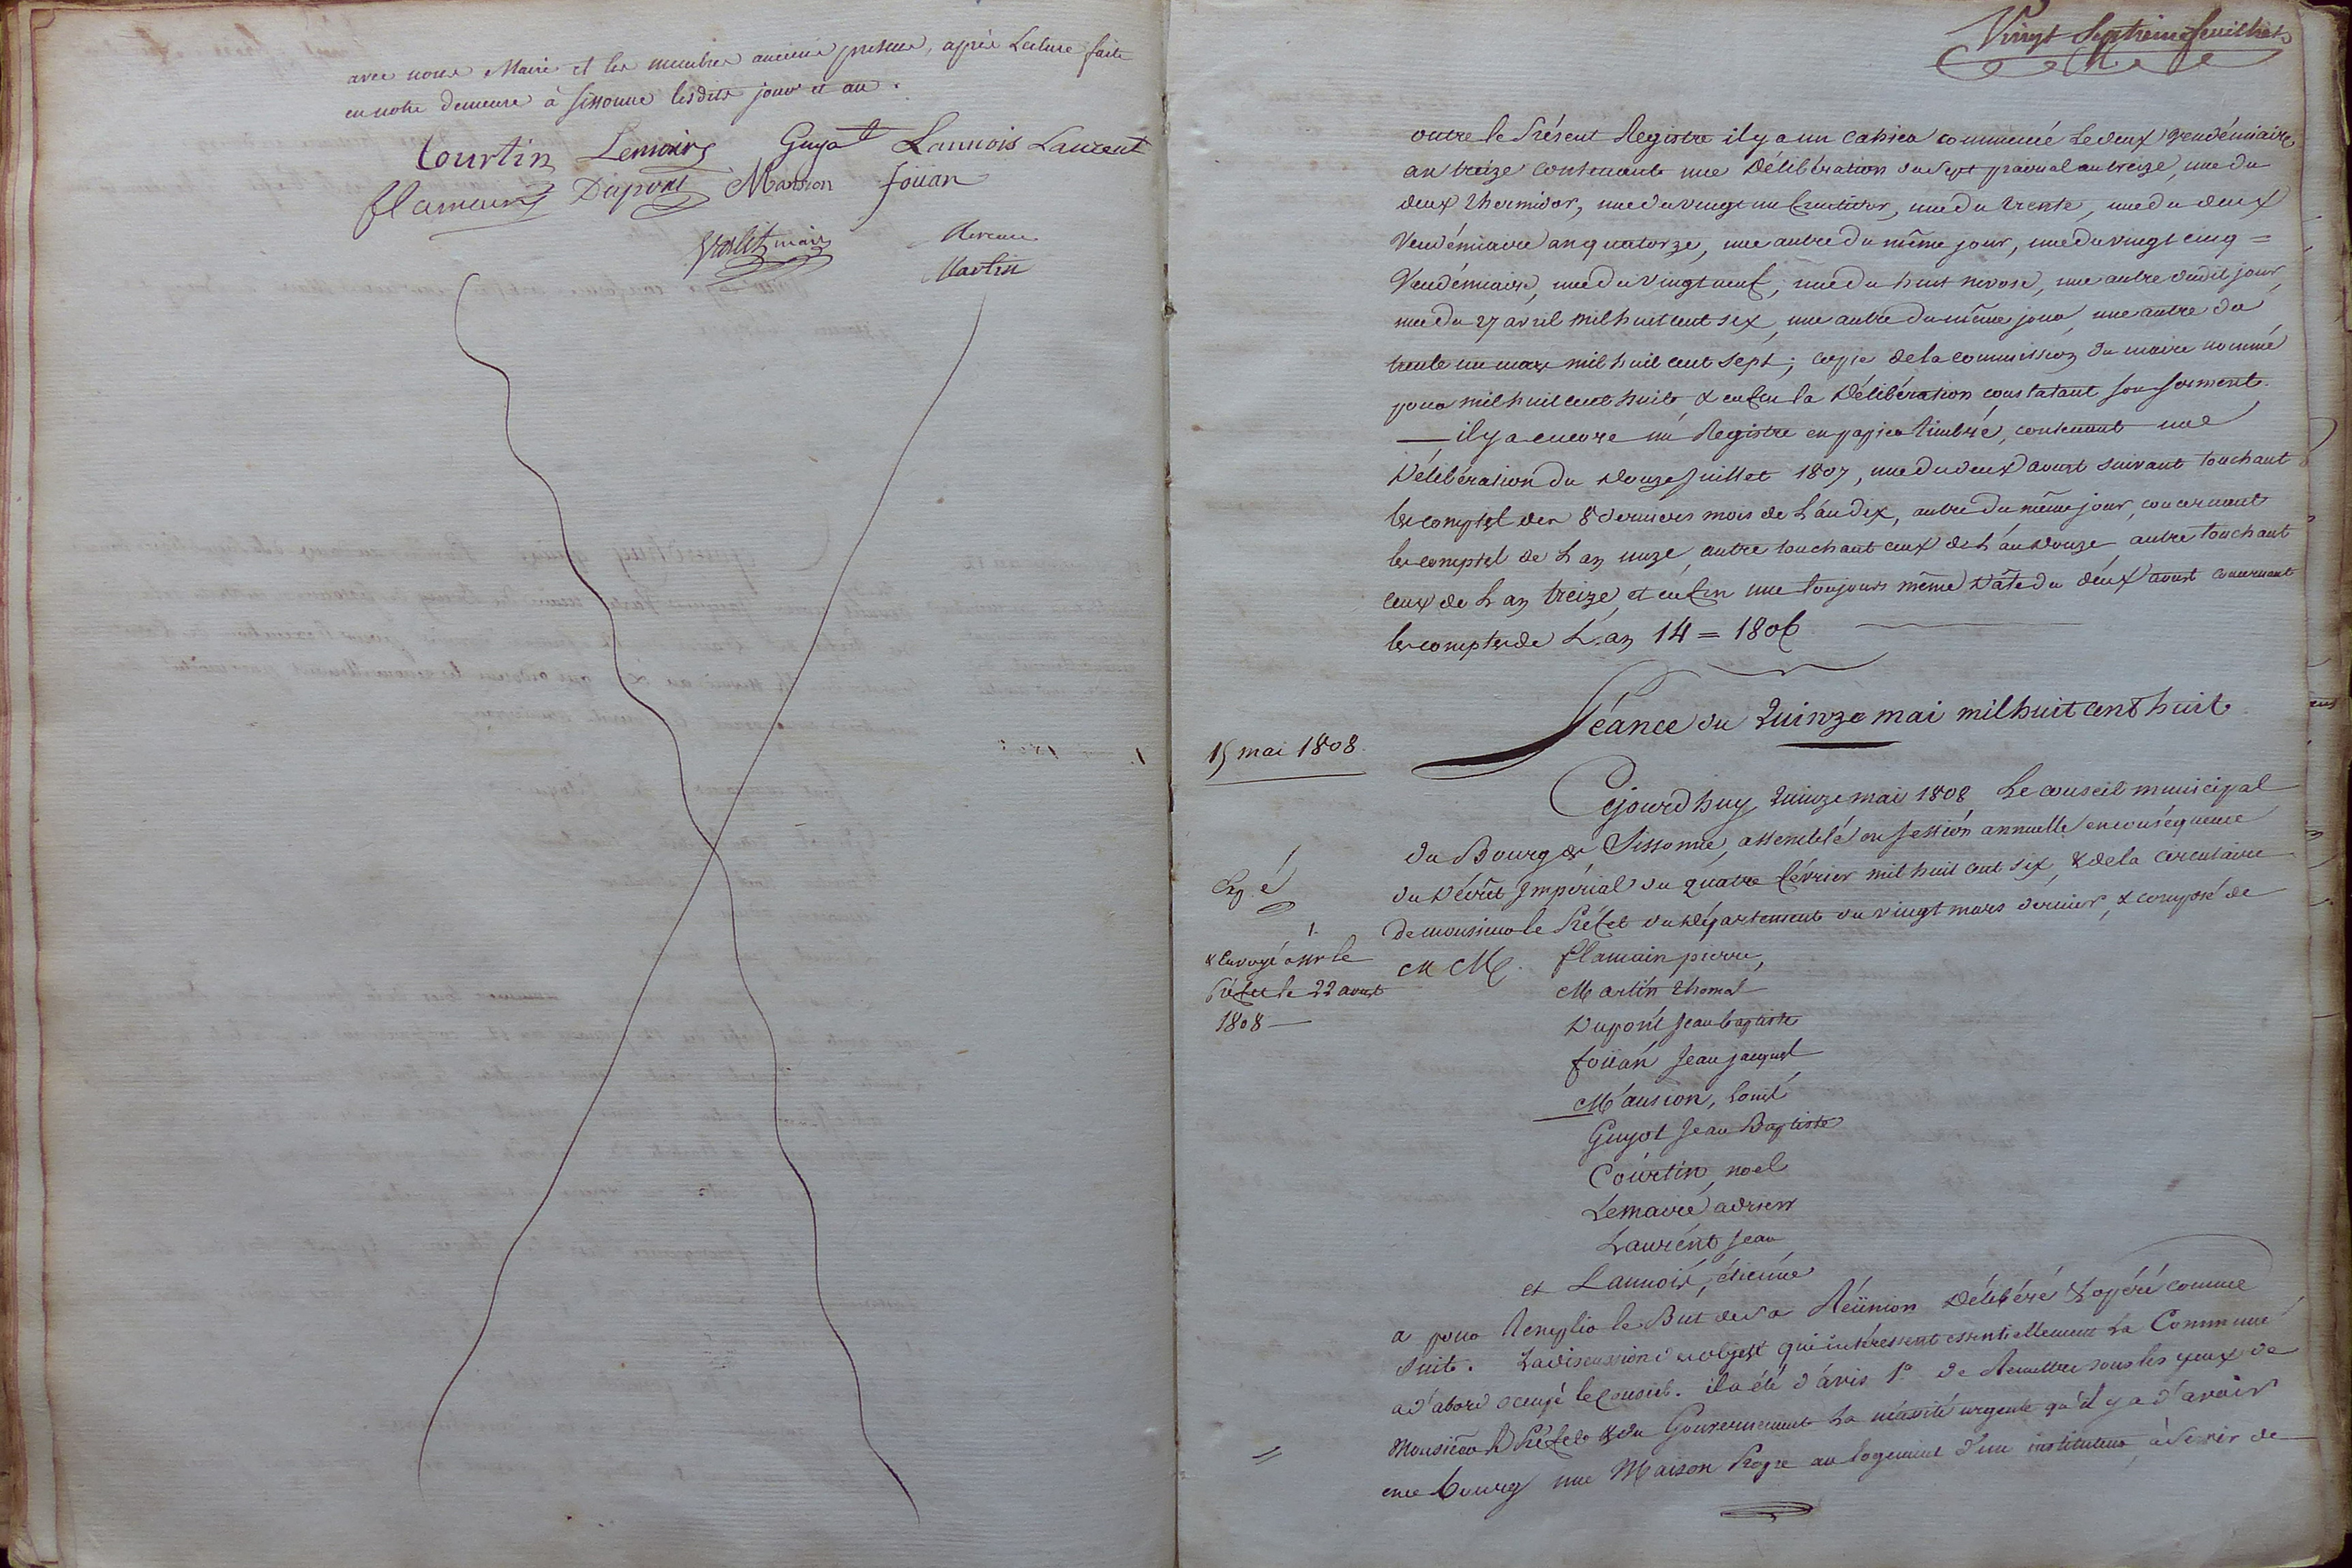 avec nous Maire et les membres anciens présens, après Lecture faite
en notre demeure à Sissonne lesdits jour et an.
Courtin Lemaire Guyot Lannois Laurent
flamain Dupont Mansion fouan
maire
Martin
Vingt Septieme feuillet
outre le Présent Registre il y a un Cahier commencé le deux Vendémiaire
an treize contenant une Délibération du Sept prairial an treize, une du
deux thermidor, une du vingt un fructidor, une du trente, une du deux
Vendémiaire an quatorze, une autre du même jour, une du vingt cinq =
Vendémiaire, une du Vingt neuf, une du huit nivose, une autre dudit jour,
une du 27 avril mil huit cent six, une autre du même jour, une autre du
trente un mars mil huit cent sept; copie de la commission du maire nommé
pour mil huit cent huit & enfin la Délibération constatant son serment.
— il y a encore un Registre en papier timbré, contenant une
Délibération du douze Juillet 1807, une du deux aoust suivant touchant
les comptes des 8 derniers mois de L'an dix, autre du même jour, concernant
les comptes de L'an onze, autre touchant ceux de L'an douze, autre touchant
ceux de L'an treize, et enfin une toujours même Date du deux aoust concernant
les comptes de L'an 14 = 1806
Séance du Quinze mai mil huit cent huit
15 mai 1808.
Cejourd'huy Quinze mai 1808 Le conseil municipal
du Bourg de Sissonne, assemblé en session annuelle en conséquence
du Décret Impérial du quatre février mil huit cent six, & de la circulaire
de monsieur le Préfet du Département du vingt mars dernier, & composé de
Exp. é
1.
& Envoyé à mr le
Préfet le 22 aoust
1808 —
MM. flamain pierre,
Martin Thomas
Dupont Jean baptiste
foüan Jean jacques
Mansion, Louis
Guyot Jean Baptiste
Courtin, noel
Lemaire adrien
Laurent Jean
et Lannois, étienne
a pour Remplir le But de sa Réünion Délibéré & opéré comme
suit. La discussion d'objets qui intéressent essentiellement La Commune
a d'abord occupé le Conseil. il a été d'avis 1° de Remettre sous les yeux de
Monsieur le Préfet & du Gouvernement La nécessité urgente qu'il y a d'avoir
= en ce bourg une Maison Propre au logement d'un instituteur, à Servir de